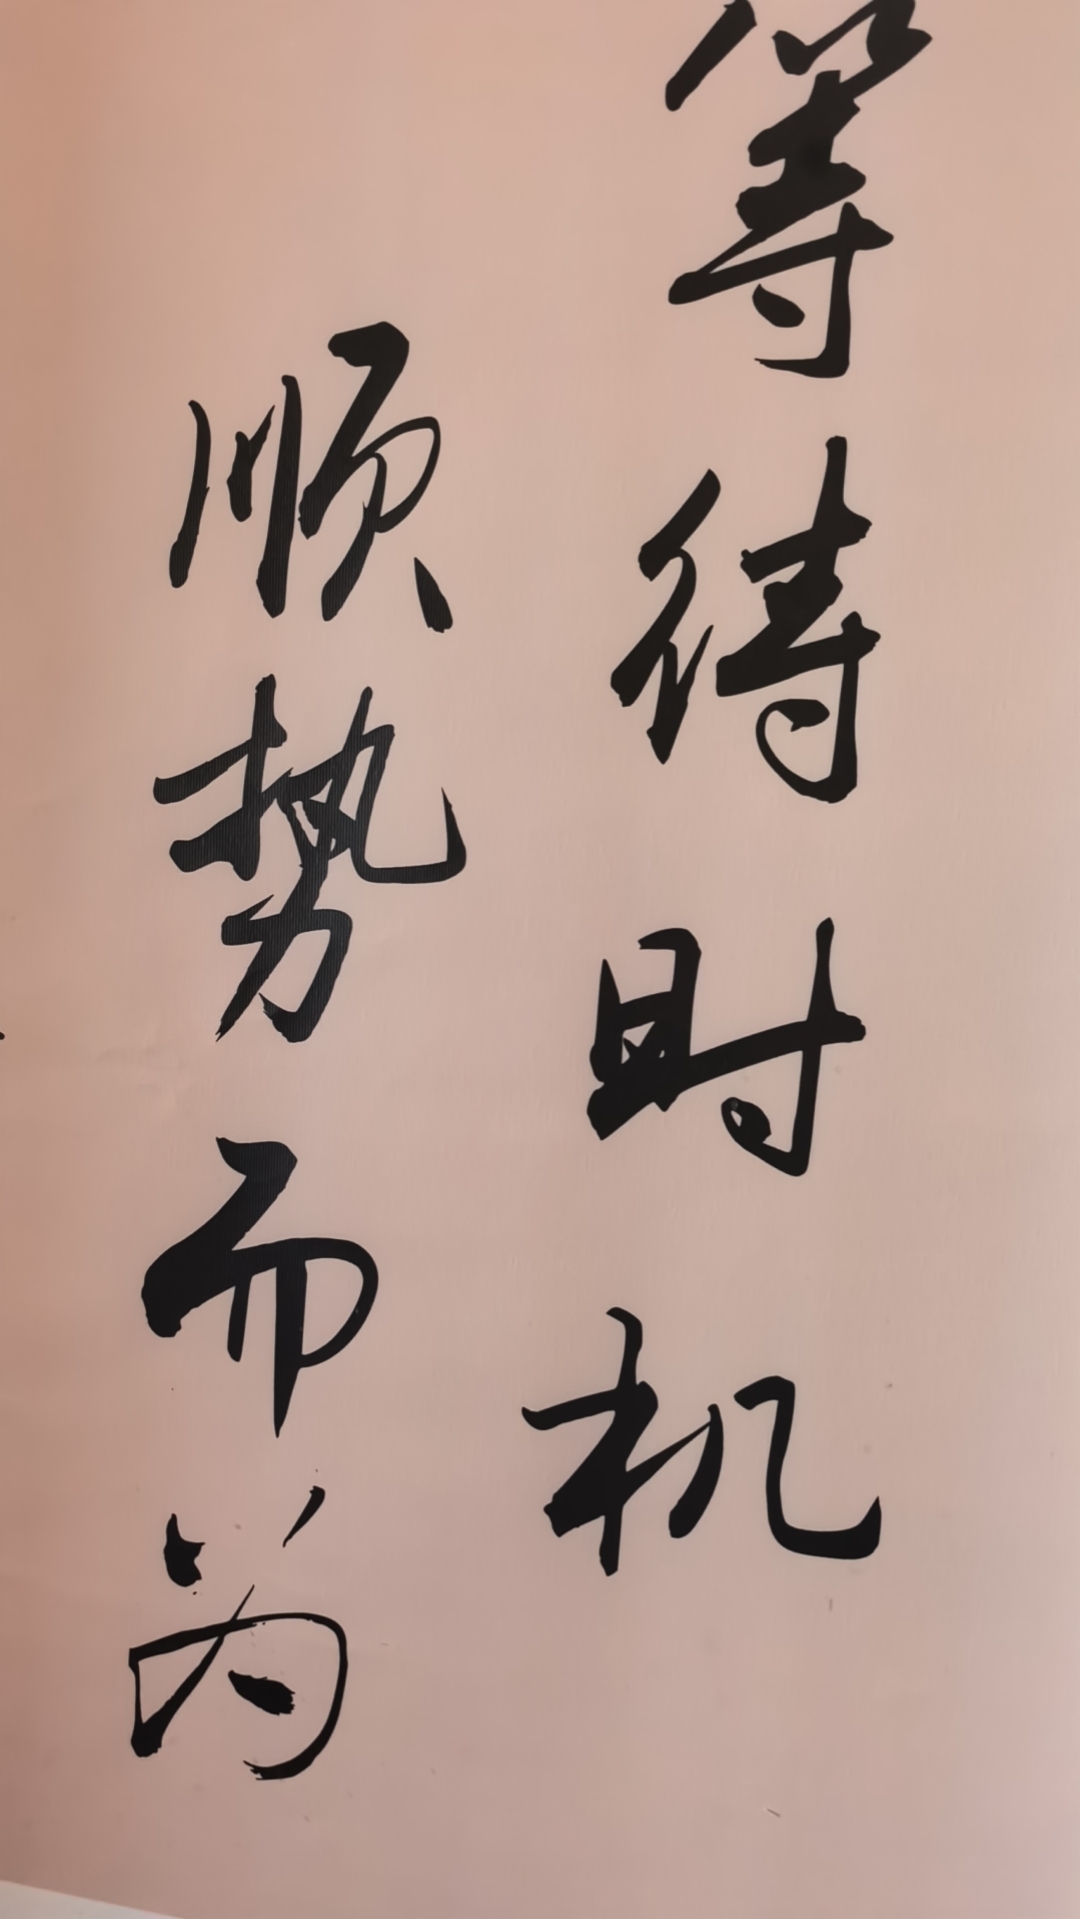 等待时机
顺势而为